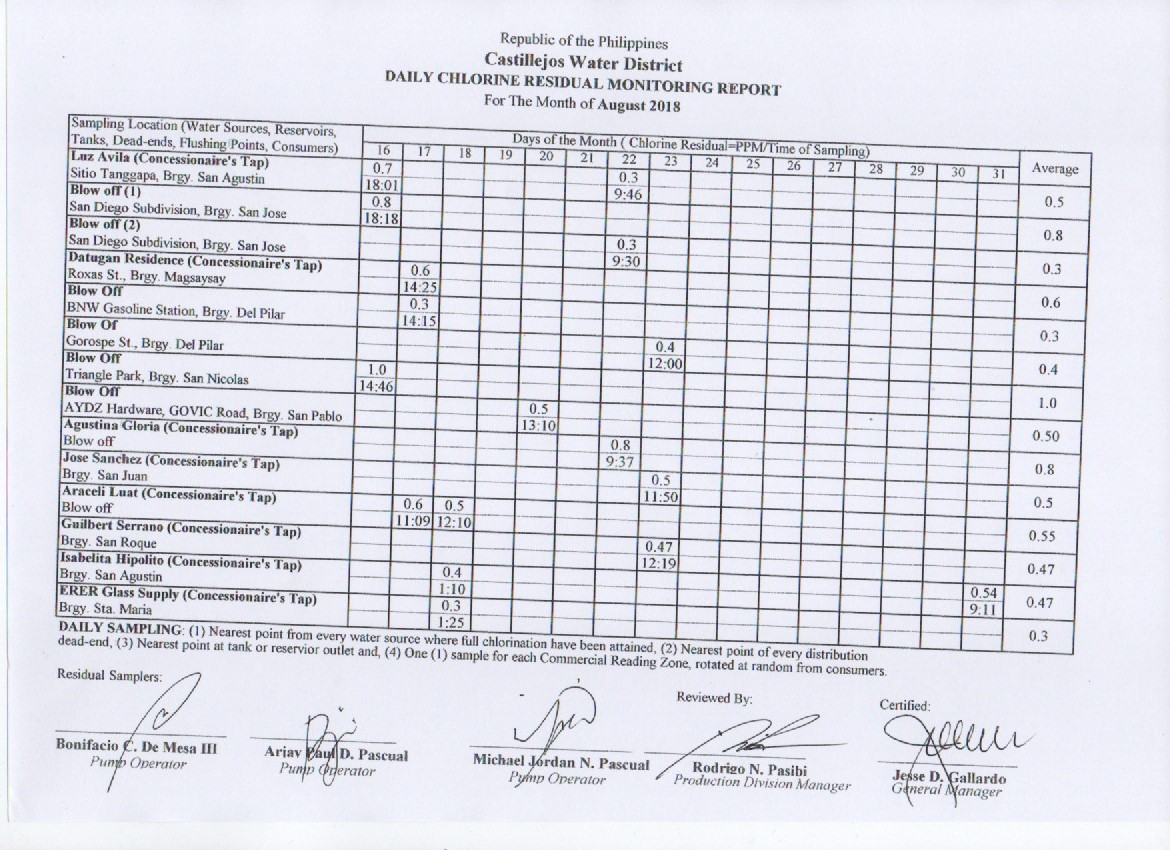 Republic of the Philippines
Castillejos Water District
DAILY CHLORINE RESIDUAL MONITORING REPORT
For The Month of August 2018
Sampling Location (Water Sources, Reservoirs,
Tanks, Dead-ends, Flushing Points, Consumers)
Days of the Month ( Chlorine Residual=PPM/Time of Sampling)
Average
16 17 18 19 20 21 22 23 24 25 26 27 28 29 30 31
Luz Avila (Concessionaire's Tap) 0.7 0.3
Sitio Tanggapa, Brgy. San Agustin 18:01 9:46 0.5
Blow off (1) 0.8
San Diego Subdivision, Brgy. San Jose 18:18 0.8
Blow off (2) 0.3
San Diego Subdivision, Brgy. San Jose 9:30 0.3
Datugan Residence (Concessionaire's Tap) 0.6
Roxas St., Brgy. Magsaysay 14:25 0.6
Blow Off 0.3
BNW Gasoline Station, Brgy. Del Pilar 14:15 0.3
Blow Of 0.4
Gorospe St., Brgy. Del Pilar 12:00 0.4
Blow Off 1.0
Triangle Park, Brgy. San Nicolas 14:46 1.0
Blow Off 0.5
AYDZ Hardware, GOVIC Road, Brgy. San Pablo 13:10 0.50
Agustina Gloria (Concessionaire's Tap) 0.8
Blow off 9:37 0.8
Jose Sanchez (Concessionaire's Tap) 0.5
Brgy. San Juan 11:50 0.5
Araceli Luat (Concessionaire's Tap) 0.6 0.5
Blow off 11:09 12:10 0.55
Guilbert Serrano (Concessionaire's Tap) 0.47
Brgy. San Roque 12:19 0.47
Isabelita Hipolito (Concessionaire's Tap) 0.4 0.54
Brgy. San Agustin 1:10 9:11 0.47
ERER Glass Supply (Concessionaire's Tap) 0.3
Brgy. Sta. Maria 1:25 0.3
DAILY SAMPLING: (1) Nearest point from every water source where full chlorination have been attained, (2) Nearest point of every distribution
dead-end, (3) Nearest point at tank or reservior outlet and, (4) One (1) sample for each Commercial Reading Zone, rotated at random from consumers.
Residual Samplers:
Reviewed By:
Certified:
Bonifacio C. De Mesa III
Pump Operator
Ariav Paul D. Pascual
Pump Operator
Michael Jordan N. Pascual
Pump Operator
Rodrigo N. Pasibi
Production Division Manager
Jesse D. Gallardo
General Manager